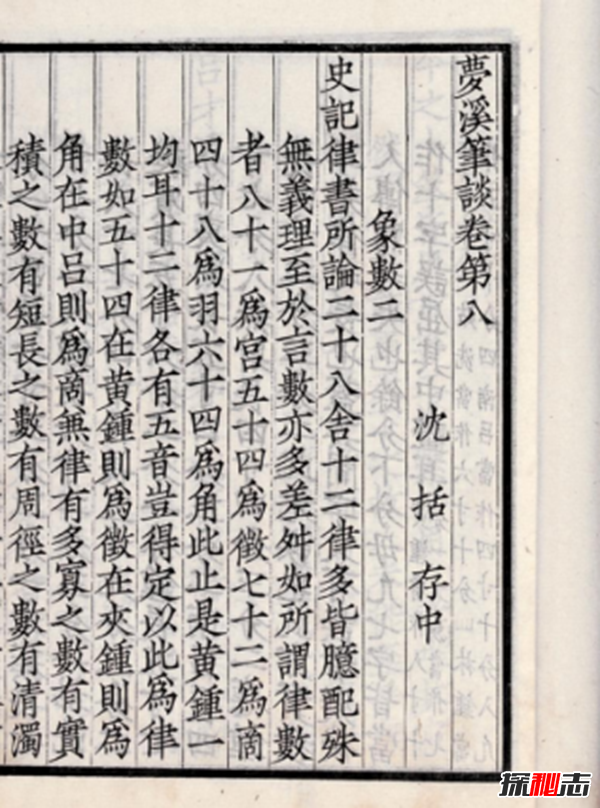 夢溪筆談卷第八
沈括存中
象數二
史記律書所論二十八舍十二律多皆臆配殊
無義理至於言數亦多差舛如所謂律數
者八十一為宮五十四為徵七十二為商
四十八為羽六十四為角此止是黄鍾一
均耳十二律各有五音豈得定以此為律
數如五十四在黄鍾則為徵在夾鍾則為
角在中吕則為商兼律有多寡之數有實
積之數有短長之數有周徑之數有清濁
探秘志